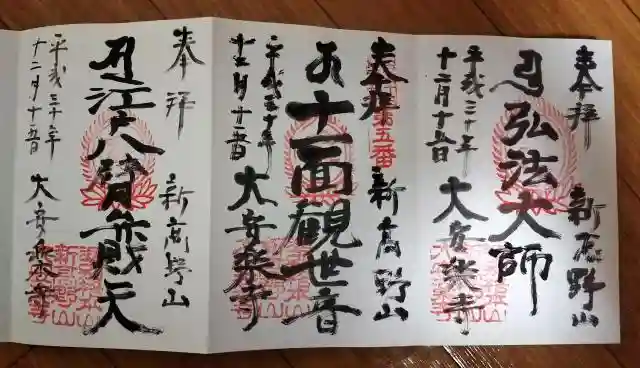 奉拝
新高野山
弘法大師
平成三十年
十二月十五日
大安楽寺
奉拝
第五番
新高野山
十一面観世音
平成三十年
十二月十五日
大安楽寺
奉拝
新高野山
江戸八臂弁財天
平成三十年
十二月十五日
大安楽寺